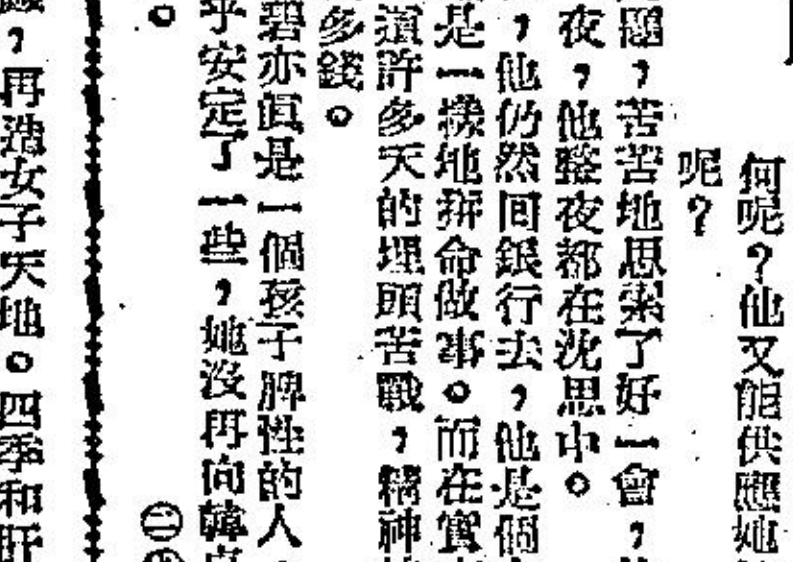 何呢？他又能供應她
呢？
題，苦苦地思索了好一會，
夜，他整夜都在沈思中。
，他仍然回銀行去，他是個
是一樣地拼命做事。而在實
許多天的埋頭苦戰，精神
多錢。
碧亦眞是一個孩子脾性的人，
乎安定了一些，她沒再向韓
。 ㊁
，再造女子天地。四季和肝